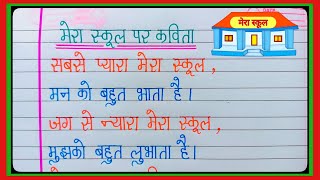 मेरा स्कूल पर कविता
मेरा स्कूल
सबसे प्यारा मेरा स्कूल,
मन को बहुत भाता है।
जग से न्यारा मेरा स्कूल,
मुझको बहुत लुभाता है।